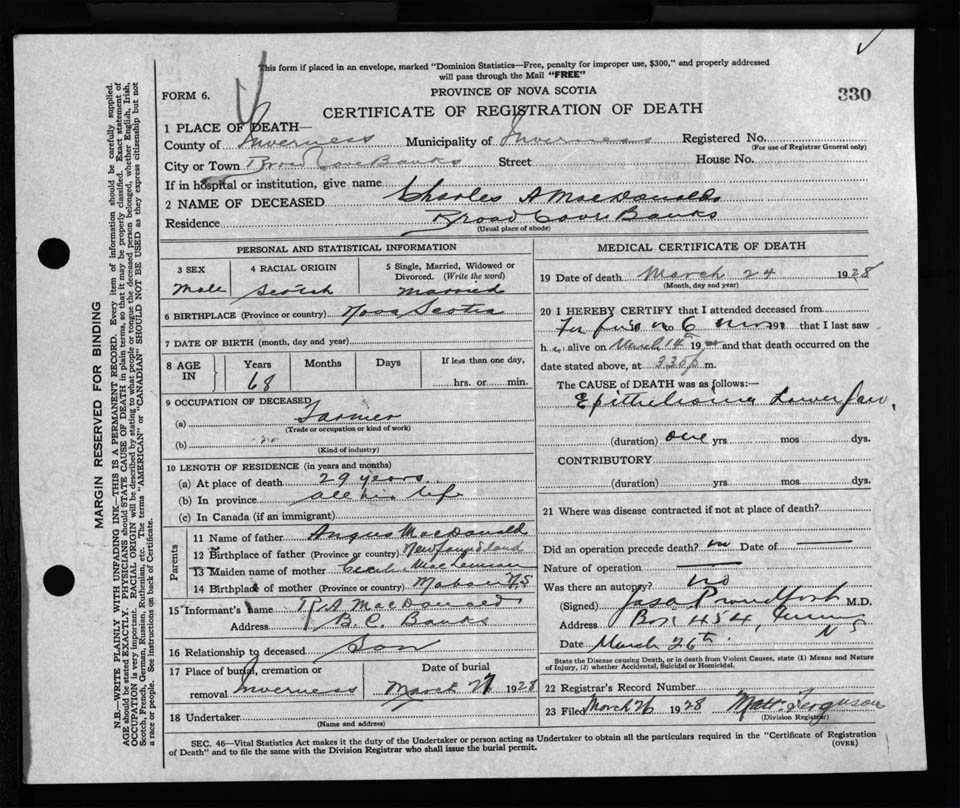 This form if placed in an envelope, marked "Dominion Statistics—Free, penalty for improper use, $300," and properly addressed
will pass through the Mail "FREE"
FORM 6.
PROVINCE OF NOVA SCOTIA
330
CERTIFICATE OF REGISTRATION OF DEATH
1 PLACE OF DEATH—
County of Inverness Municipality of Inverness Registered No.
(For use of Registrar General only)
City or Town Broad Cove Banks Street House No.
If in hospital or institution, give name
2 NAME OF DECEASED Charles A MacDonald
Residence Broad Cove Banks
(Usual place of abode)
PERSONAL AND STATISTICAL INFORMATION
3 SEX 4 RACIAL ORIGIN 5 Single, Married, Widowed or Divorced. (Write the word)
Male Scotch Married
6 BIRTHPLACE (Province or country) Nova Scotia
7 DATE OF BIRTH (month, day and year)
8 AGE IN Years Months Days If less than one day,
68 hrs. or min.
9 OCCUPATION OF DECEASED
(a) Farmer
(Trade or occupation or kind of work)
(b)
(Kind of industry)
10 LENGTH OF RESIDENCE (in years and months)
(a) At place of death 29 years
(b) In province all his life
(c) In Canada (if an immigrant)
Parents
11 Name of father Angus MacDonald
12 Birthplace of father (Province or country) Newfoundland
13 Maiden name of mother MacLennan
14 Birthplace of mother (Province or country) Mabou N S
15 Informant's name R. A. MacDonald
Address B. C. Banks
16 Relationship to deceased Son
17 Place of burial, cremation or Date of burial
removal Inverness March 27 1928
18 Undertaker
(Name and address)
MEDICAL CERTIFICATE OF DEATH
19 Date of death March 24 1928
(Month, day and year)
20 I HEREBY CERTIFY that I attended deceased from
6 19 that I last saw
h alive on March 14th 19 and that death occurred on the
date stated above, at m.
The CAUSE of DEATH was as follows:—
Epithelioma Lower Jaw
(duration) one yrs mos dys.
CONTRIBUTORY
(duration) yrs mos dys.
21 Where was disease contracted if not at place of death?
Did an operation precede death? no Date of
Nature of operation
Was there an autopsy? no
(Signed) Proudfoot M.D.
Address Box 454, N S
Date March 26th.
State the Disease causing Death, or in death from Violent Causes, state (1) Means and Nature
of Injury, (2) whether Accidental, Suicidal or Homicidal.
22 Registrar's Record Number
23 Filed March 26 1928 Matt. Ferguson
(Division Registrar)
SEC. 46—Vital Statistics Act makes it the duty of the Undertaker or person acting as Undertaker to obtain all the particulars required in the "Certificate of Registration
of Death" and to file the same with the Division Registrar who shall issue the burial permit.
(OVER)
MARGIN RESERVED FOR BINDING
N.B.—WRITE PLAINLY WITH UNFADING INK—THIS IS A PERMANENT RECORD. Every item of information should be carefully supplied.
AGE should be stated EXACTLY. PHYSICIANS should STATE CAUSE OF DEATH in plain terms, so that it may be properly classified. Exact statement of
OCCUPATION is very important. RACIAL ORIGIN will be described by stating to what people or tongue the deceased person belonged, whether English, Irish,
Scotch, French, German, Russian, Ruthenian, etc. The terms "AMERICAN" or "CANADIAN" SHOULD NOT BE USED as they express citizenship but not
a race or people. See instructions on back of Certificate.